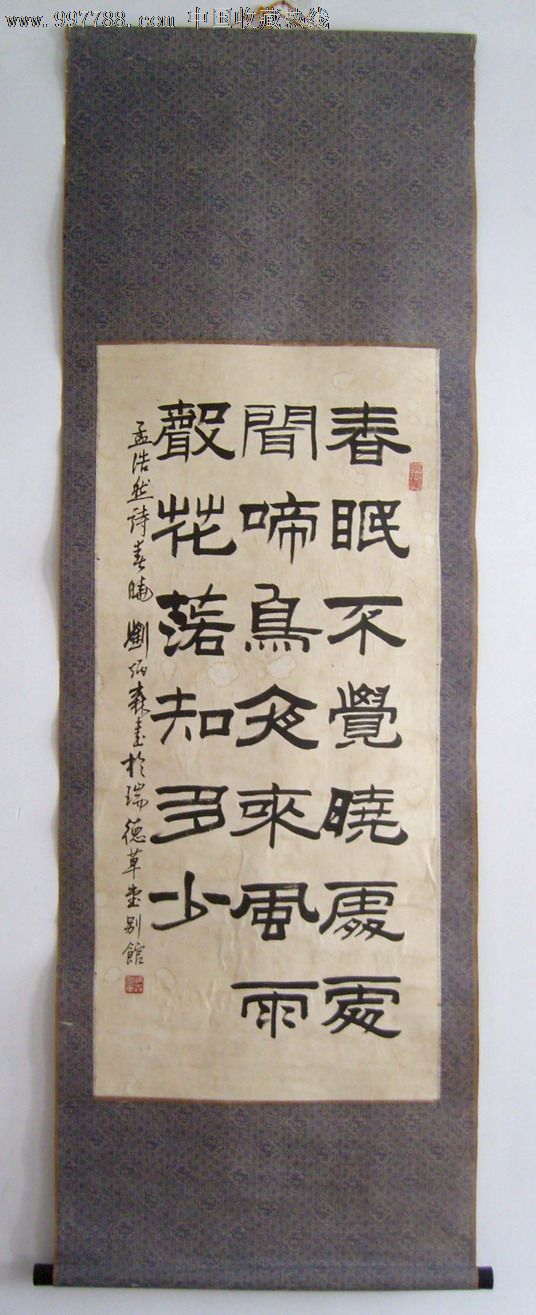 www.997788.com 中国收藏热线
春眠不覺曉處處
聞啼鳥夜來風雨
聲花落知多少
孟浩然詩春曉 劉炳森書於瑞德草堂別館